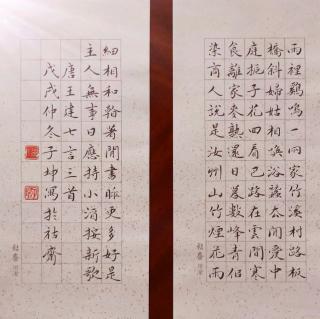 雨裡鷄鳴一兩家竹溪村路板
橋斜婦姑相喚浴蠶去閒看中
庭梔子花回看巴路在雲間寒
食離家麥熟還日暮數峰青似
染商人說是汝州山竹煙花雨
細相和看著閒書睡更多好是
主人無事日應持小酒按新歌
唐王建七言三首
戊戌仲冬子坤寫於祜齋